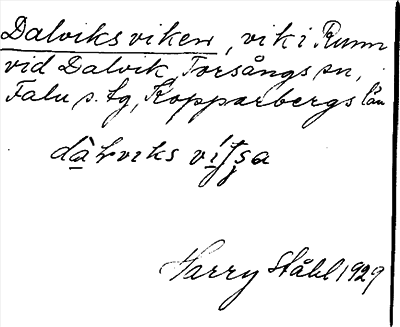 Dalviksviken, vik i Runn
vid Dalvik, Torsångs sn,
Falu s. tg, Kopparbergs län
Harry Ståhl 1929